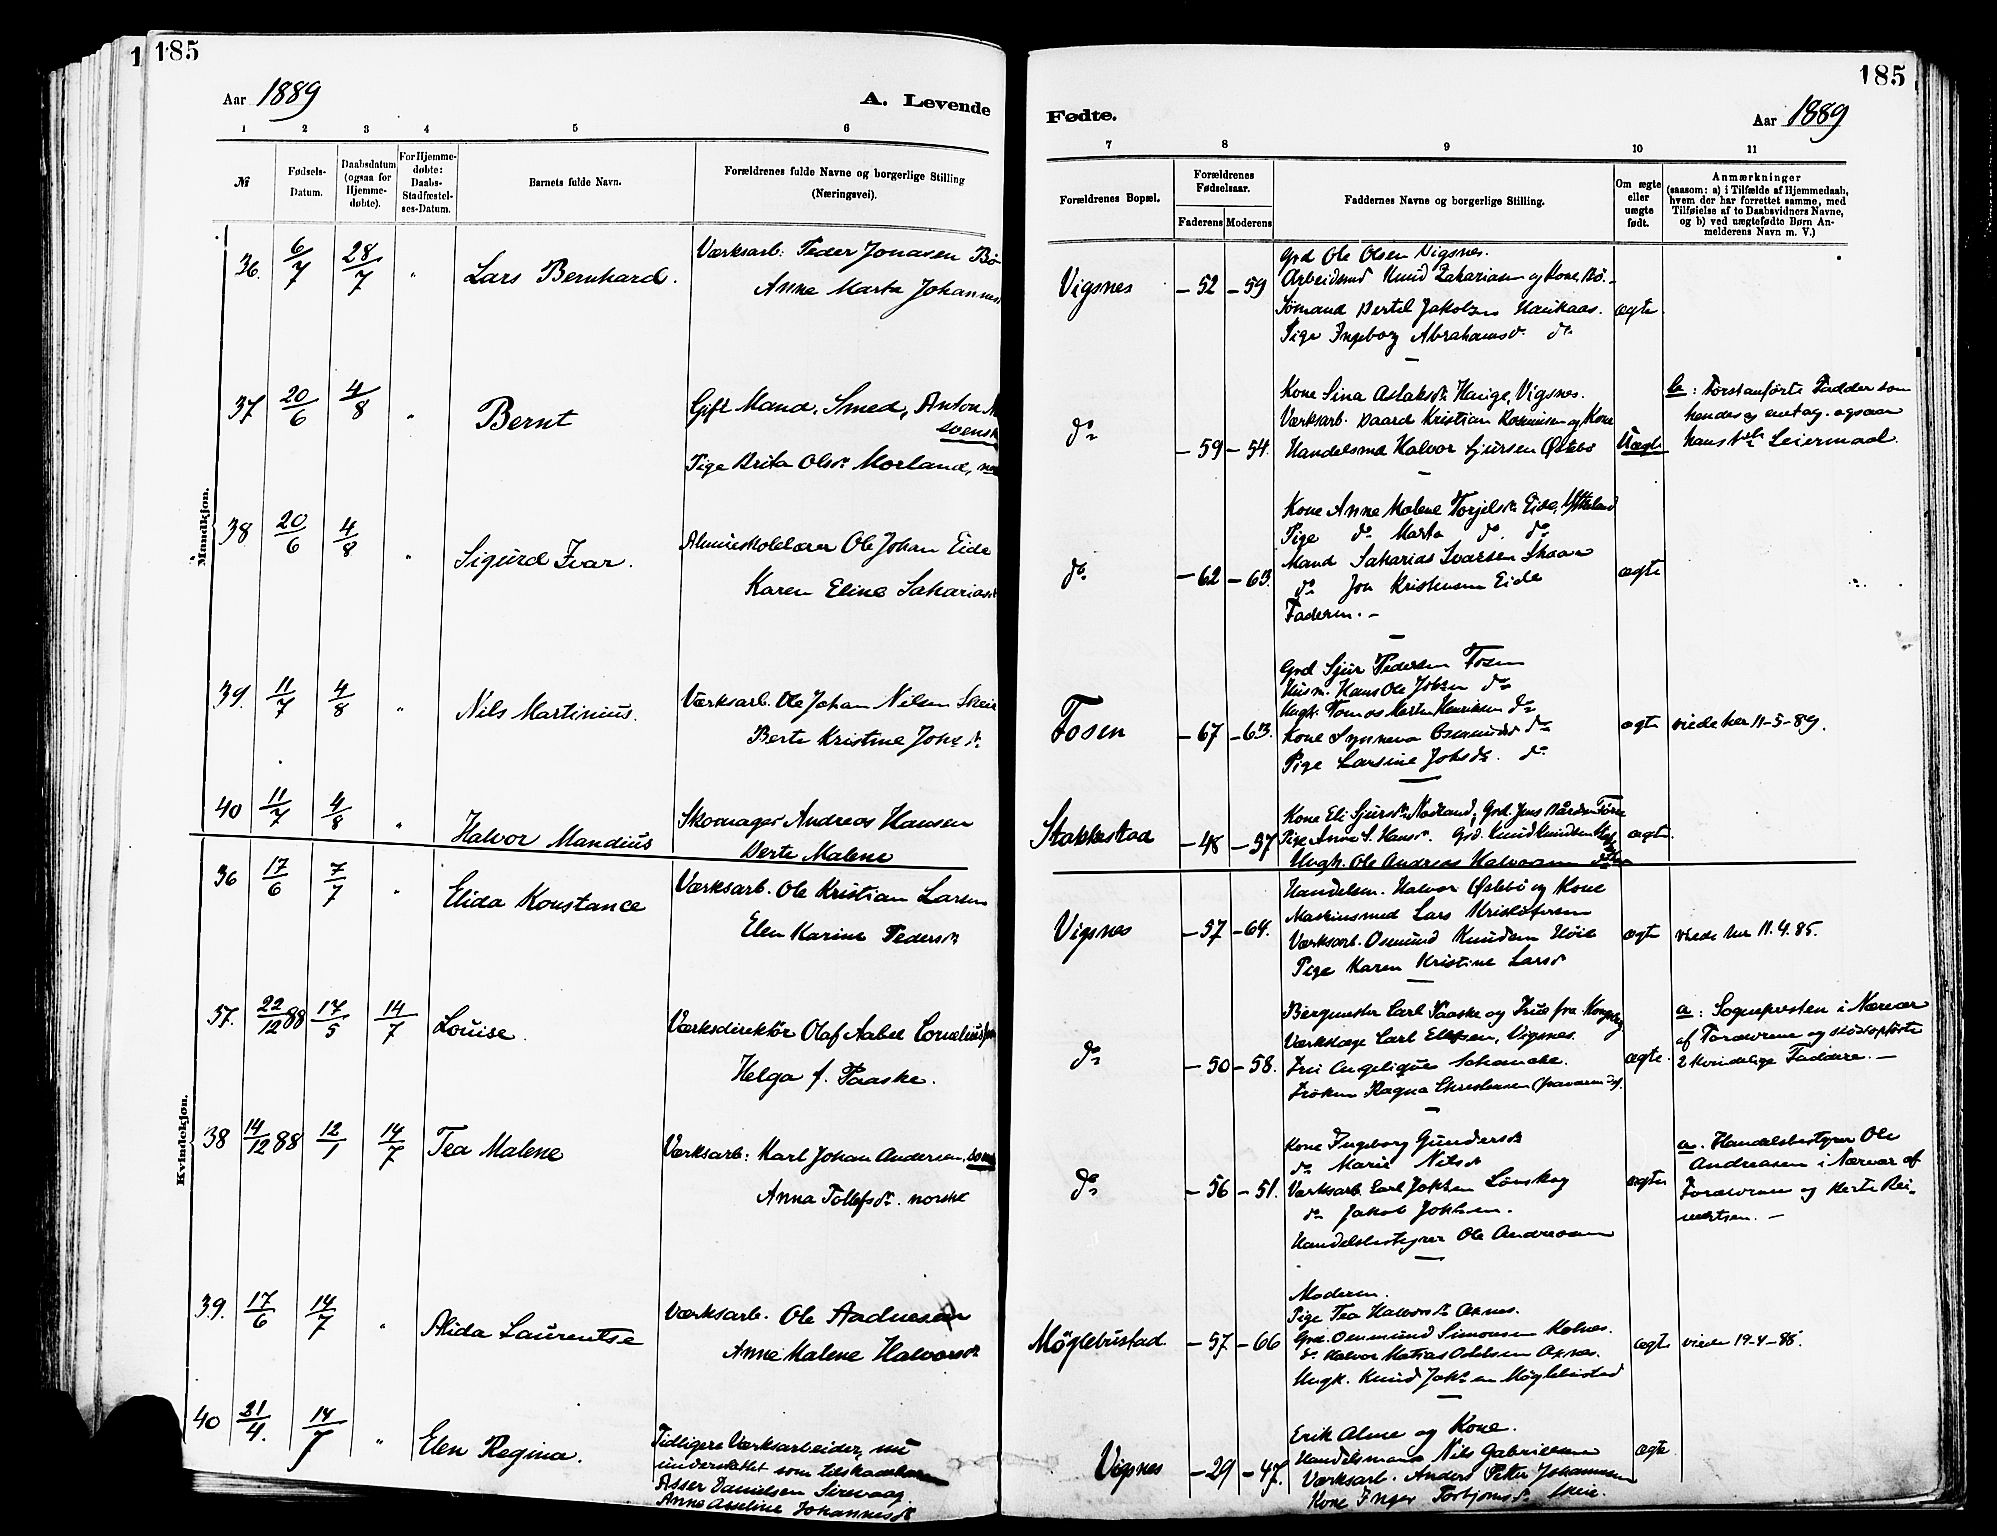 185
185
Aar 1889
A. Levende
Fødte.
Aar 1889
1 2 3 4 5 6
7 8 9 10 11
№
Fødsels-Datum.
Daabsdatum (ogsaa for Hjemmedøbte).
For Hjemmedøbte: Daabs-Stadfæstelses-Datum.
Barnets fulde Navn.
Forældrenes fulde Navne og borgerlige Stilling (Næringsvei).
Forældrenes Bopæl.
Forældrenes Fødselsaar.
Faderens Moderens
Faddernes Navne og borgerlige Stilling.
Om ægte eller uægte født.
Anmærkninger
(saasom: a) i Tilfælde af Hjemmedaab,
hvem der har forrettet samme, med
Tilføielse af to Daabsvidners Navne,
og b) ved uægtefødte Børn Anmelderens Navn m. V.)
Mandkjøn.
36. 6/7 28/7 " Lars Bernhard.
Værksarb: Peder Jonasen Bø
Anne Marta Johannes
Vigsnes - 52 - 59
Grd Ole Olsen Vigsnes.
Arbeidsmd Knud Zakariasen og Kone, Bø. -
Sømand Bertel Jakobsen Haukaas.
Pige Ingeborg Abrahamsd. do
ægte
37 20/6 4/8 " Bernt
Gift Mand, Smed, Anton
svensk
Pige Brita Olsdr Morland,
do - 59 - 54.
Kone Sina Aslaksdr Hauge, Vigsnes.
Værksarb. Baard Kristian Rasmusen og Kone
Handelsmd Halvor Sjursen Østebø
Uægte
b: Førstanførte Fadder som
hendes og antag. ogsaa
hans Leiermaal.
38 20/6 4/8 " Sigurd Ivar.
Almueskolelærer Ole Johan Eide
Karen Eline Sakariasdr
do - 62 - 63.
Kone Anne Malene Torjelsdr Eide,
Pige do Marta do. do
Mand Sakarias Ivarsen Skaar
do Jon Kristensen Eide
Faderen. -
ægte
39. 11/7 4/8 " Nils Martinius.
Værksarb. Ole Johan Nilsen Skeie
Berte Kristine Johsdr
Fosen - 67 - 63.
Grd Sjur Pedersen Fosen
Husm. Hans Ole Johsen do
Ungk. Tomas Martin Henriksen do
Kone Synneva Osmundsd do
Pige Larsine Johsdr. do
ægte
viede her 11-5-89.
40 11/7 4/8 " Halvor Mandius
Skomager Andreas Hansen
Berte Malene
Stakkestad - 48 - 57
Kone Eli Sjursdr Nødland, Grd. Jens Bårdsen
Pige Anne S. Hansdr. Grd. Knud Knudsen
Ungk. Ole Andreas Halvorsen
ægte.
Kvindekjøn.
36 17/6 7/7 " Elida Konstance
Værksarb. Ole Kristian Larsen
Elen Karine Pedersdr
Vigsnes - 57 - 64.
Handelsm. Halvor Østebø og Kone
Maskinsmed Lars Kristofersen
Værksarb. Osmund Knudsen Høie
Pige Karen Kristine Larsdr
ægte
viede her 11.4.85.
37. 22/12 88 17/5 14/7 Louise.
Værksdirektør Olaf Aabel Cornelius
Helga f. Paaske.
do - 50 - 58.
Bergmester Carl Paaske og Frue fra Kongsberg
Værkslæge Carl Ellefsen, Vigsnes.
Fru Angelique Schanche.
Frøken Ragna Christensen
ægte.
a: Sognepresten i Nærvær
af Forældrene og sidstopførte
2 kvindelige Faddere. -
38 14/12 88 12/1 14/7 Tea Malene
Værksarb: Karl Johan Andersen, svensk
Anna Tollefsdr. norske
do - 56 - 51.
Kone Ingeborg Gundersdr
do Marie Nilsdr
Værksarb. Carl Johsen Lønskog
do Jakob Johsen.
Handelsbestyrer Ole Andreasen
ægte
a. Handelsbestyrer Ole
Andreasen i Nærvær af
Forældrene og Berte Reinertsen. -
39. 17/6 14/7 " Alida Laurentse
Værksarb. Ole Aadnesen
Anne Malene Halvorsdr
Møglebustad - 57 - 66
Moderen.
Pige Tea Halvorsdr Axnes.
Grd. Ommund Simonsen Kolnes.
do Halvor Matias Oddsen Axnes.
Ungk. Knud Johsen Møglebustad
ægte
viede 19-4-88.
40 21/4. 14/7 " Elen Regina.
Tidligere Værksarbeider, nu
understøttet som tilskadekommen
Asser Danielsen Sirevaag
Anne Asseline Johannesdr
Vigsnes - 29 - 47.
Erik Alme og Kone.
Handelsmand Nils Gabrielsen
Værksarb. Anders Petter Johannesen
Kone Inger Torbjørnsdr Skeie.
ægte.